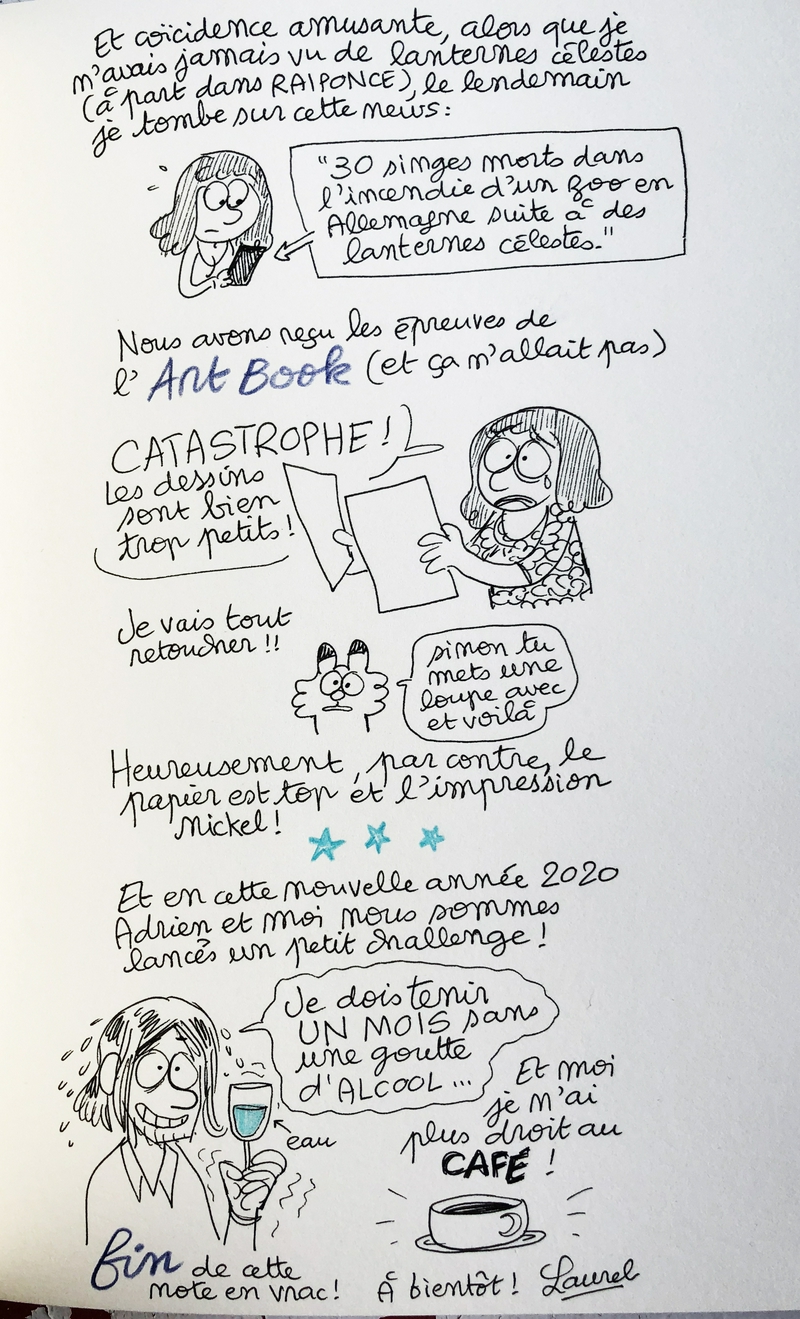 Et coïcidence amusante, alors que je
m'avais jamais vu de lanternes célestes
(à part dans RAIPONCE), le lendemain
je tombe sur cette news :
"30 singes morts dans
l'incendie d'un zoo en
Allemagne suite à des
lanternes célestes."
Nous avons reçu les épreuves de
l'Art Book (et ça m'allait pas)
CATASTROPHE !
Les dessins
sont bien
trop petits !
Je vais tout
retoucher !!
simon tu
mets une
loupe avec
et voilà
Heureusement, par contre, le
papier est top et l'impression
Nickel !
Et en cette nouvelle année 2020
Adrien et moi nous sommes
lancés un petit challenge !
Je dois tenir
UN MOIS sans
une goutte
d'ALCOOL ...
eau
Et moi
je n'ai
plus droit au
CAFÉ !
fin de cette
note en vrac !
À bientôt ! Laurel